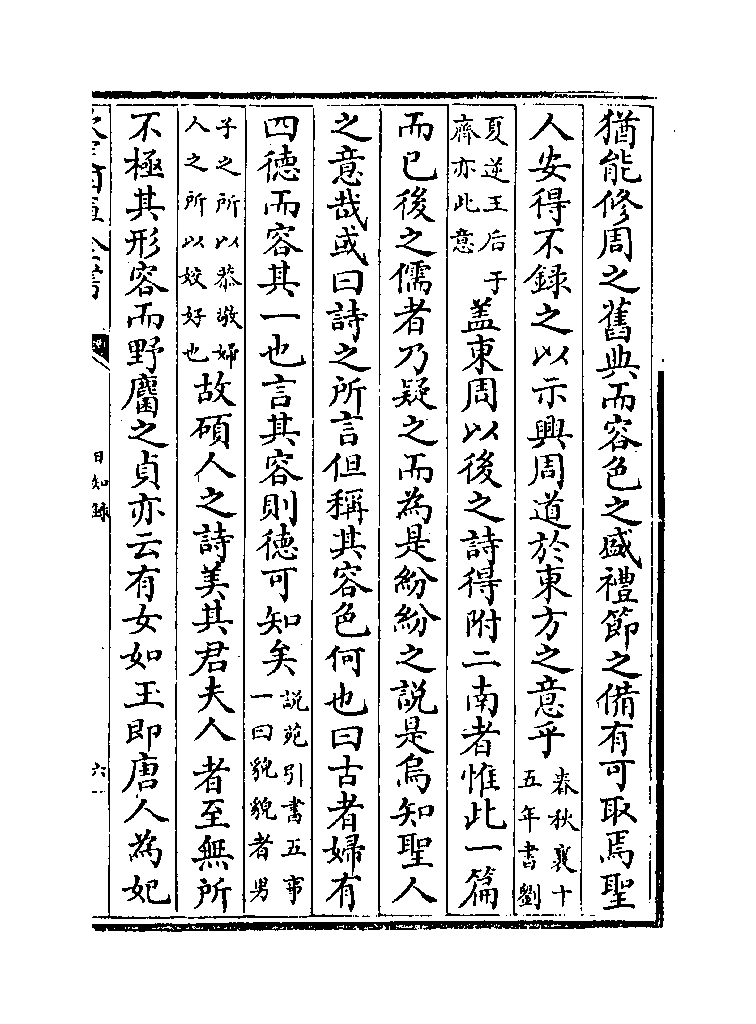 猶能修周之舊典而容色之盛禮節之備有可取焉聖
人安得不録之以示興周道於東方之意乎春秋襄十
五年書劉
夏逆王后于
齊亦此意蓋東周以後之詩得附二南者惟此一篇
而已後之儒者乃疑之而為是紛紛之説是烏知聖人
之意哉或曰詩之所言但稱其容色何也曰古者婦有
四德而容其一也言其容則德可知矣説苑引書五事
一曰貌貌者男
子之所以恭敬婦
人之所以姣好也故碩人之詩美其君夫人者至無所
不極其形容而野麕之貞亦云有女如玉即唐人為妃
日知錄
六